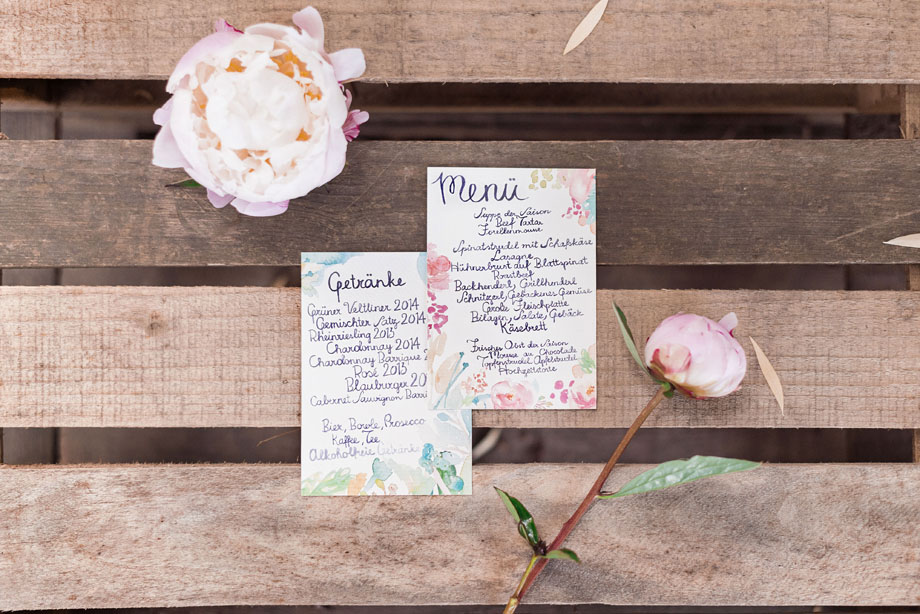 Menü
Suppe der Saison
Beef Tartar
Forellenmousse
Spinatstrudel mit Schafskäse
Lasagne
Hühnerbrust auf Blattspinat
Roastbeef
Backhenderl, Grillhenderl
Schnitzerl, Gebackenes Gemüse
Große Fleischplatte
Beilagen, Salate, Gebäck
Käsebrett
Frisches Obst der Saison
Mousse au Chocolate
Topfenstrudel, Apfelstrudel
Hochzeitstorte
Getränke
Grüner Veltliner 2014
Gemischter Satz 2014
Rheinriesling 2013
Chardonnay 2014
Chardonnay Barrique 2
Rosé 2013
Blauburger 20
Cabernet Sauvignon Barri
Bier, Bowle, Prosecco
Kaffee, Tee
Alkoholfreie Getränke